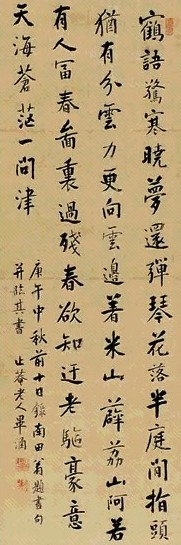 鶴語驚寒曉夢還彈琴花落半庭間指頭
猶有分雲力更向雲邊着米山薜荔山阿若
有人富春面裏過殘春欲知迂老驅豪意
天海蒼茫一問津
庚午中秋前十日錄南田翁題畫句
并臨其書 止菴老人畢涵